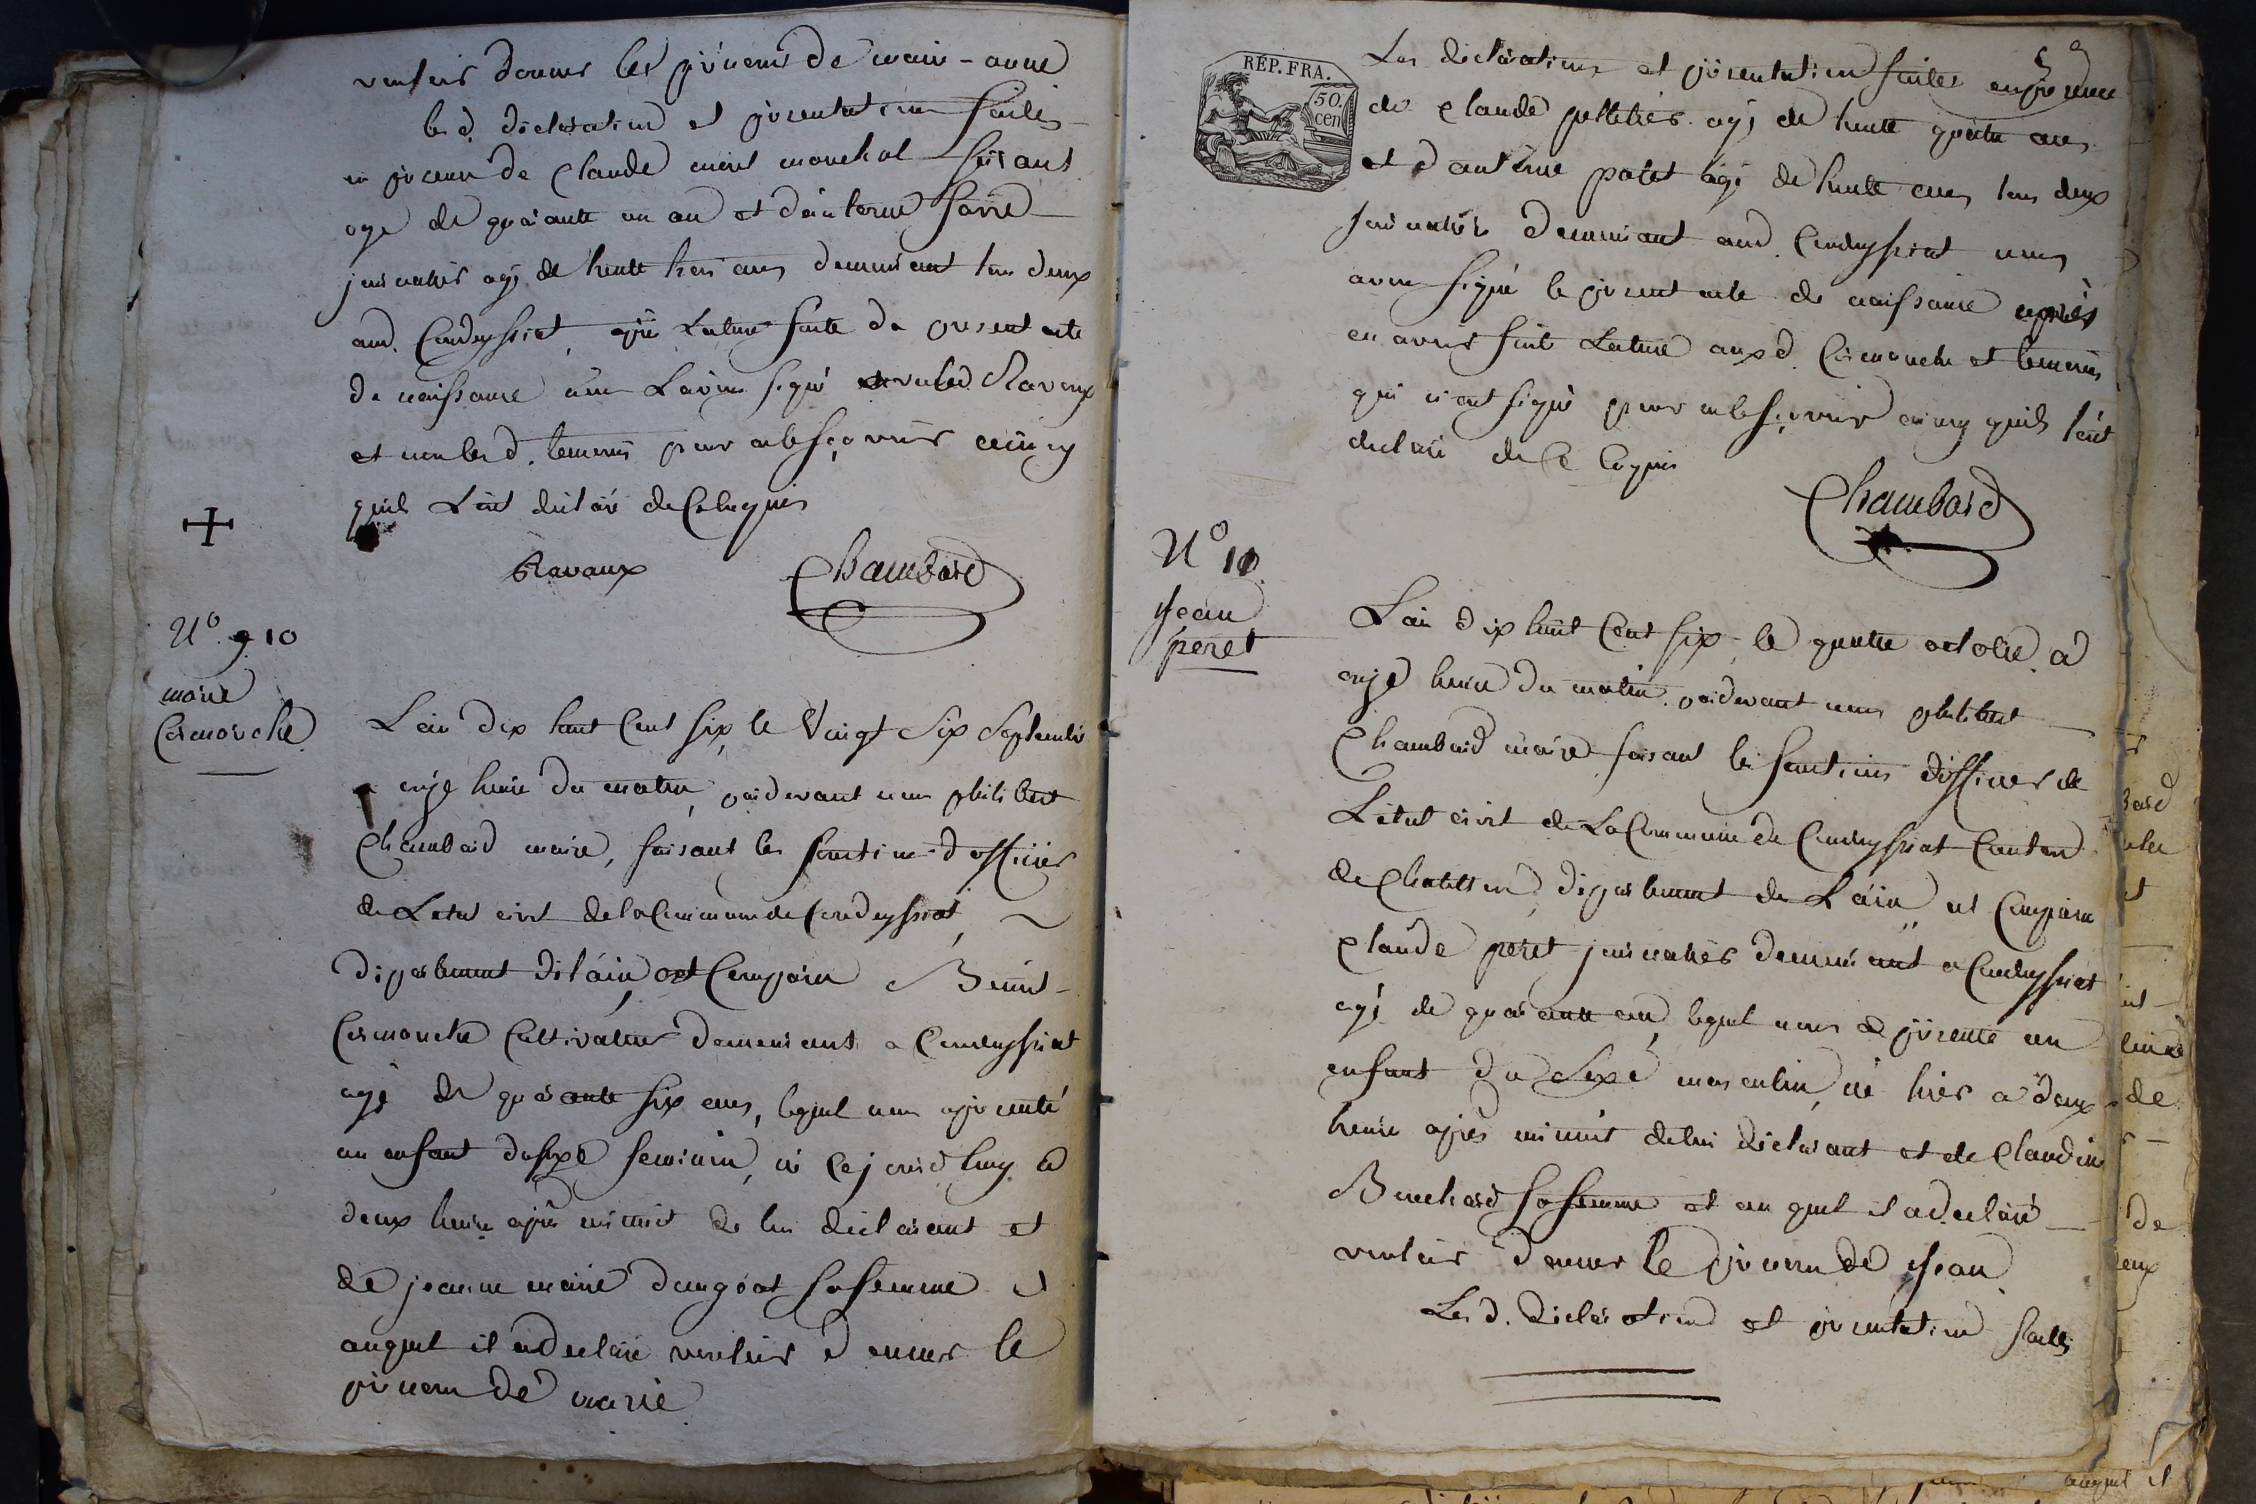 vouloir donner les prénoms de marie-anne
les d. déclaration et présentation faites
en présence de Claude marechal
age de quarante un an et d'antoine favre
journalier agé de trente trois ans demeurant tous deux
aud. Condeyssiat, aprés Lecture faite du présent acte
de naissance nous L'avons signé avec led Ravoux
et non les d. temoins pour ne le sçavoir ainsy
quils L'ont declaré de Ce Requis
Ravaux Chambard
N° 9 10
marie
Cormorche
L'an dix huit Cent six, le Vingt Six Septembre
a onze heure du matin, pardevant nous philibert
Chambard maire, faisant les fonctions d'officier
de Letat civil de la Commune de Condeyssiat,
département de l'ain, est Comparu Benoit
Cormorche Cultivateur demeurant a Condeyssiat
agé de quarante six ans, lequel nous a présenté
un enfant du sexe feminin, né Ce jourd'huy a
deux heure après minuit de lui déclarant et
de jeanne marie sa femme et
auquel il a déclaré vouloir donner le
prénom de marie
RÉP. FRA.
50.
cen
Les déclaration et présentation faites en présence
de Claude pelletier agé de trente quatre ans
et d'antoine patet agé de trente ans tous deux
journalier demeurant aud. Condeyssiat nous
avons signé le présent acte de naissance après
en avoir fait Lecture aux d. Cormorche et temoins
qui n'ont signé pour ne le sçavoir ainsy quils l'ont
declaré de Ce Requis
Chambard
N° 10.
jean
peret
L'an dix huit Cent six, le quatre octobre a
onze heure du matin. pardevant nous philibert
Chambard maire faisant les fonctions d'officier de
L'état civil de La Commune de Condeyssiat Canton
de Chatillon, département de L'ain, est Comparu
Claude peret journalier demeurant a Condeyssiat
agé de quarante ans, lequel nous a présenté un
enfant du Sexe masculin, né hier a deux
heure après minuit de lui déclarant et de Claudine
Bouchard sa femme et au quel il a déclaré
vouloir donner le prénom de jean
Les d. déclaration et présentation faites